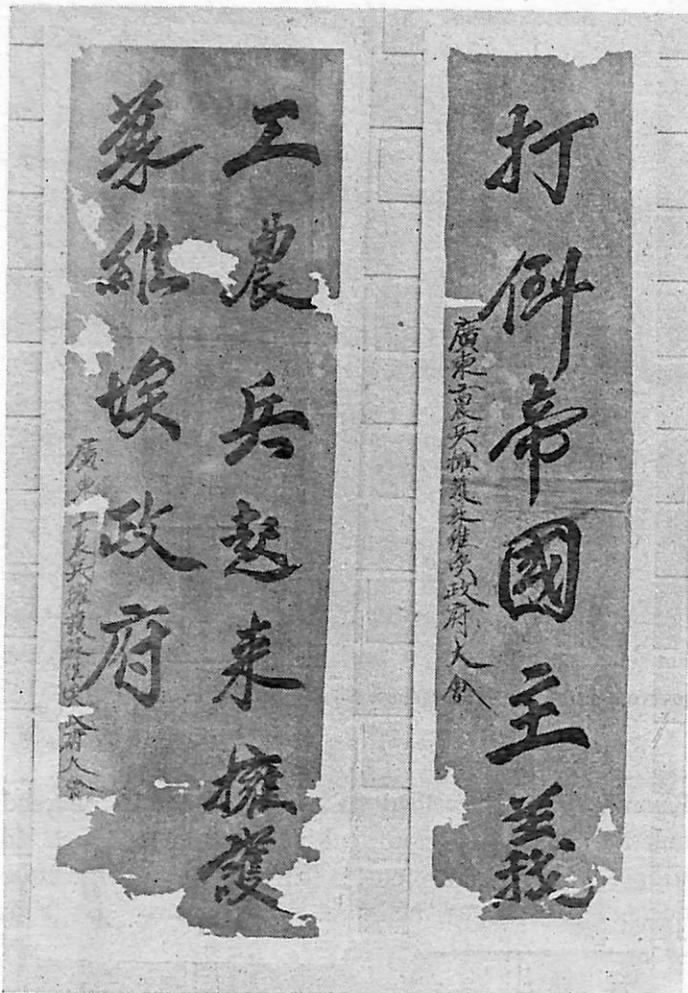 打倒帝國主義
廣東工農兵擁護蘇維埃政府大會
工農兵起来擁護
蘇維埃政府
廣東工農兵擁護蘇維埃政府大會